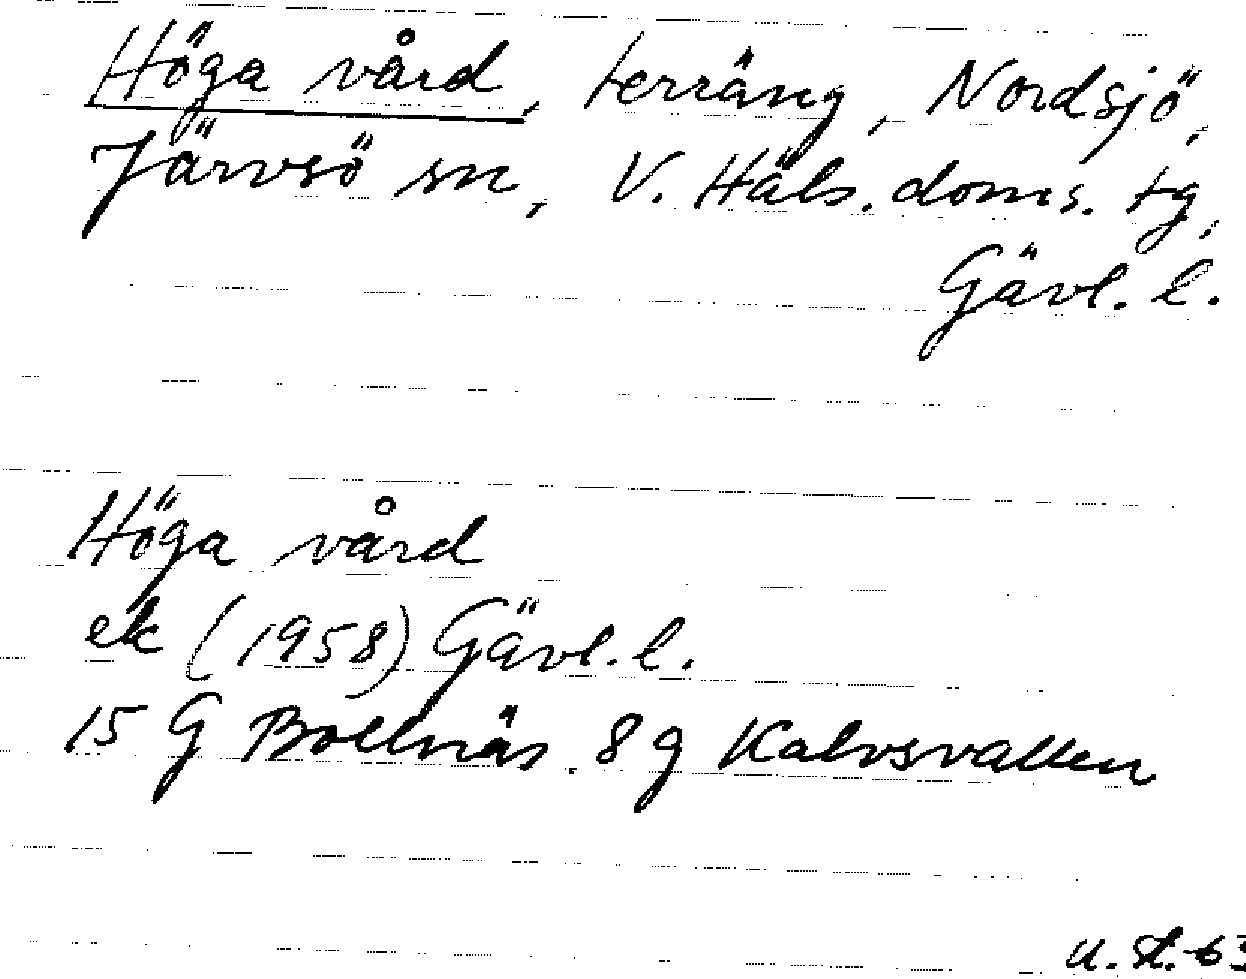 Höga vård, terräng, Nordsjö,
Järvsö sn, V. Häls. doms. tg,
Gävl. l.
Höga vård
ek (1958) Gävl. l.
15 G Bollnäs 8g Kalvsvallen
U. St. 63